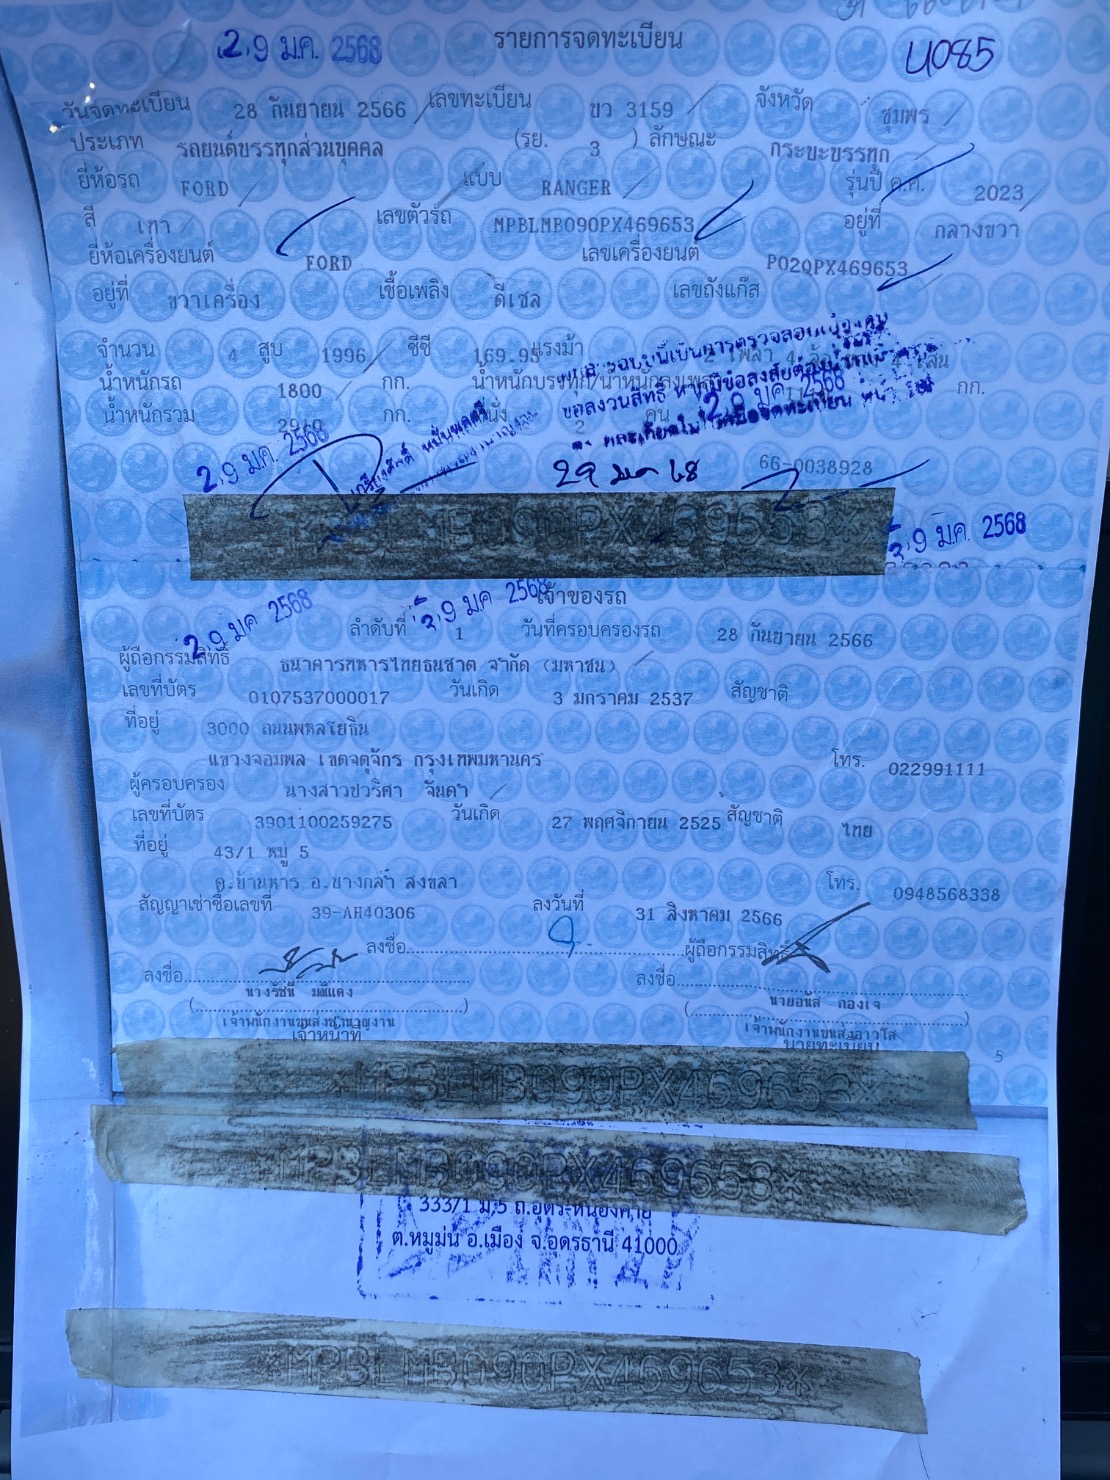 29 ม.ค. 2568
รายการจดทะเบียน
4085
วันจดทะเบียน 28 กันยายน 2566 เลขทะเบียน ขว 3159 จังหวัด ชุมพร
ประเภท รถยนต์บรรทุกส่วนบุคคล (รย. 3 ) ลักษณะ กระบะบรรทุก
ยี่ห้อรถ FORD แบบ RANGER รุ่นปี ค.ศ. 2023
สี เทา เลขตัวรถ MPBLMB090PX469653 อยู่ที่ กลางขวา
ยี่ห้อเครื่องยนต์ FORD เลขเครื่องยนต์ P02QPX469653
อยู่ที่ ขวาเครื่อง เชื้อเพลิง ดีเซล เลขถังแก๊ส
จำนวน 4 สูบ 1996 ซีซี 169.95 แรงม้า 2 เพลา 4
น้ำหนักรถ 1800 กก. น้ำหนักบรรทุก/น้ำหนักลงเพลา กก.
น้ำหนักรวม กก. ที่นั่ง 2 คน
29 ม.ค. 2568
29 ม.ค. 2568
29 มค 68
66-0038928
MPBLMB090PX469653*
29 ม.ค. 2568
29 ม.ค. 2568
29 ม.ค. 2568
เจ้าของรถ
ลำดับที่ 1 วันที่ครอบครองรถ 28 กันยายน 2566
ผู้ถือกรรมสิทธิ์ ธนาคารทหารไทยธนชาต จำกัด (มหาชน)
เลขที่บัตร 0107537000017 วันเกิด 3 มกราคม 2537 สัญชาติ
ที่อยู่ 3000 ถนนพหลโยธิน
แขวงจอมพล เขตจตุจักร กรุงเทพมหานคร โทร. 022991111
ผู้ครอบครอง นางสาวปวริศา จันดำ
เลขที่บัตร 3901100259275 วันเกิด 27 พฤศจิกายน 2525 สัญชาติ ไทย
ที่อยู่ 43/1 หมู่ 5
ต.บ้านหาร อ.บางกล่ำ สงขลา โทร. 0948568338
สัญญาเช่าซื้อเลขที่ 39-AH40306 ลงวันที่ 31 สิงหาคม 2566
ลงชื่อ ผู้ถือกรรมสิทธิ์
ลงชื่อ ลงชื่อ
นางรัชนี มณีแดง นายอนัส กองเจ
เจ้าพนักงานขนส่งชำนาญงาน เจ้าพนักงานขนส่งอาวุโส
เจ้าหน้าที่ นายทะเบียน
5
*MPBLMB090PX469653*
*MPBLMB090PX469653*
333/1 ม.5 ถ.อุดร-หนองคาย
ต.หมูม่น อ.เมือง จ.อุดรธานี 41000
*MPBLMB090PX469653*